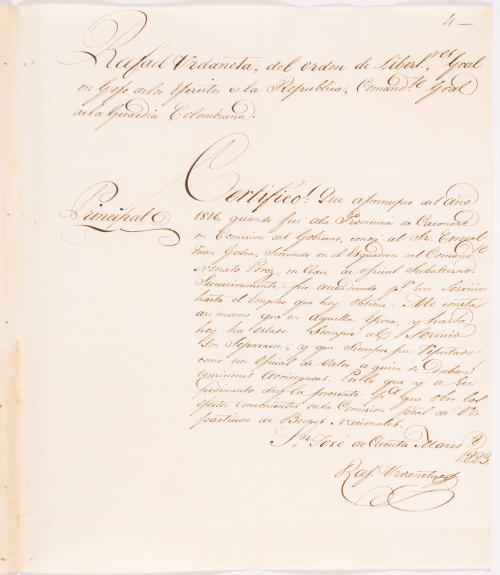 4 —
Rafael Urdañeta, del orden de Libert.res Gral
en Gefe de los Ejércitos de la Republica, Comand.te Gral
de la Guardia Colombiana.
Principal
Certifico: Que a principio del año
1816 quando fui a la Provincia de Casanare
en Comision del Gobierno, conocí al Sr. Coronel
Juan Galea, Sirviendo en el Esquadron del Comand.te
Nonato Perez, en Clase de oficial Subalterno:
Sucesivamente fue ascendiendo p.r sus Servicios
hasta el Empleo que hoy obtiene: Me consta
asi mismo que en Aquella Epoca, y hasta
hoy ha estado Siempre al Servicio
Sin Separarse, y que Siempre fue Reputado
como un oficial de Valor a quien se Daban
Comisiones Arriesgadas. Es lo que y a su
pedimento doy la presente p.a que obre los
efectos convenientes en la Comision Gral de Re-
particion de Bienes Nacionales.
S.n José de Cúcuta Marzo
1823.
Raf. Urdañeta